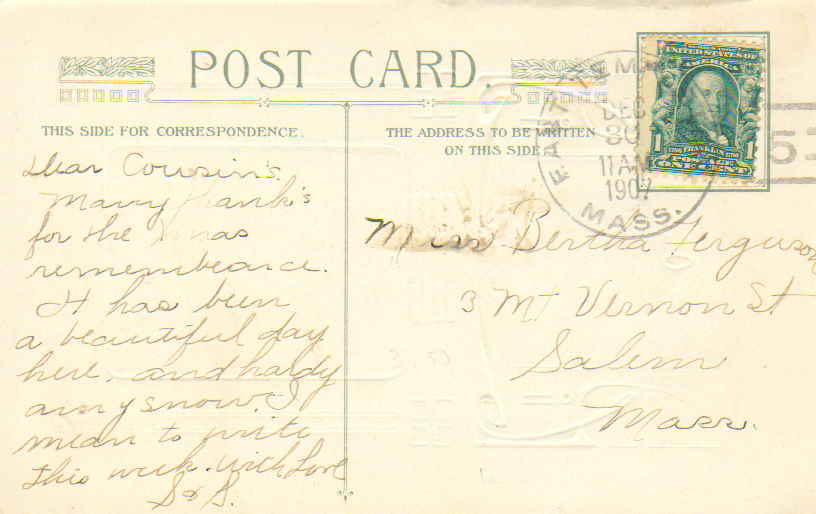 POST CARD.
THIS SIDE FOR CORRESPONDENCE.
THE ADDRESS TO BE WRITTEN
ON THIS SIDE
Dear Cousin's
Many thank's
for the Xmas
remembearce.
It has been
a beautiful day
here, and hardy
any snow. I
mean to write
this week. with Love
S & S.
Miss Bertha Ferguson
3 Mt Vernon St
Salem
Mass.
3.50
DEC
30
11 AM
1907
MASS.
UNITED STATES OF
AMERICA
1706 FRANKLIN 1790
1 1
POSTAGE
ONE CENT
5